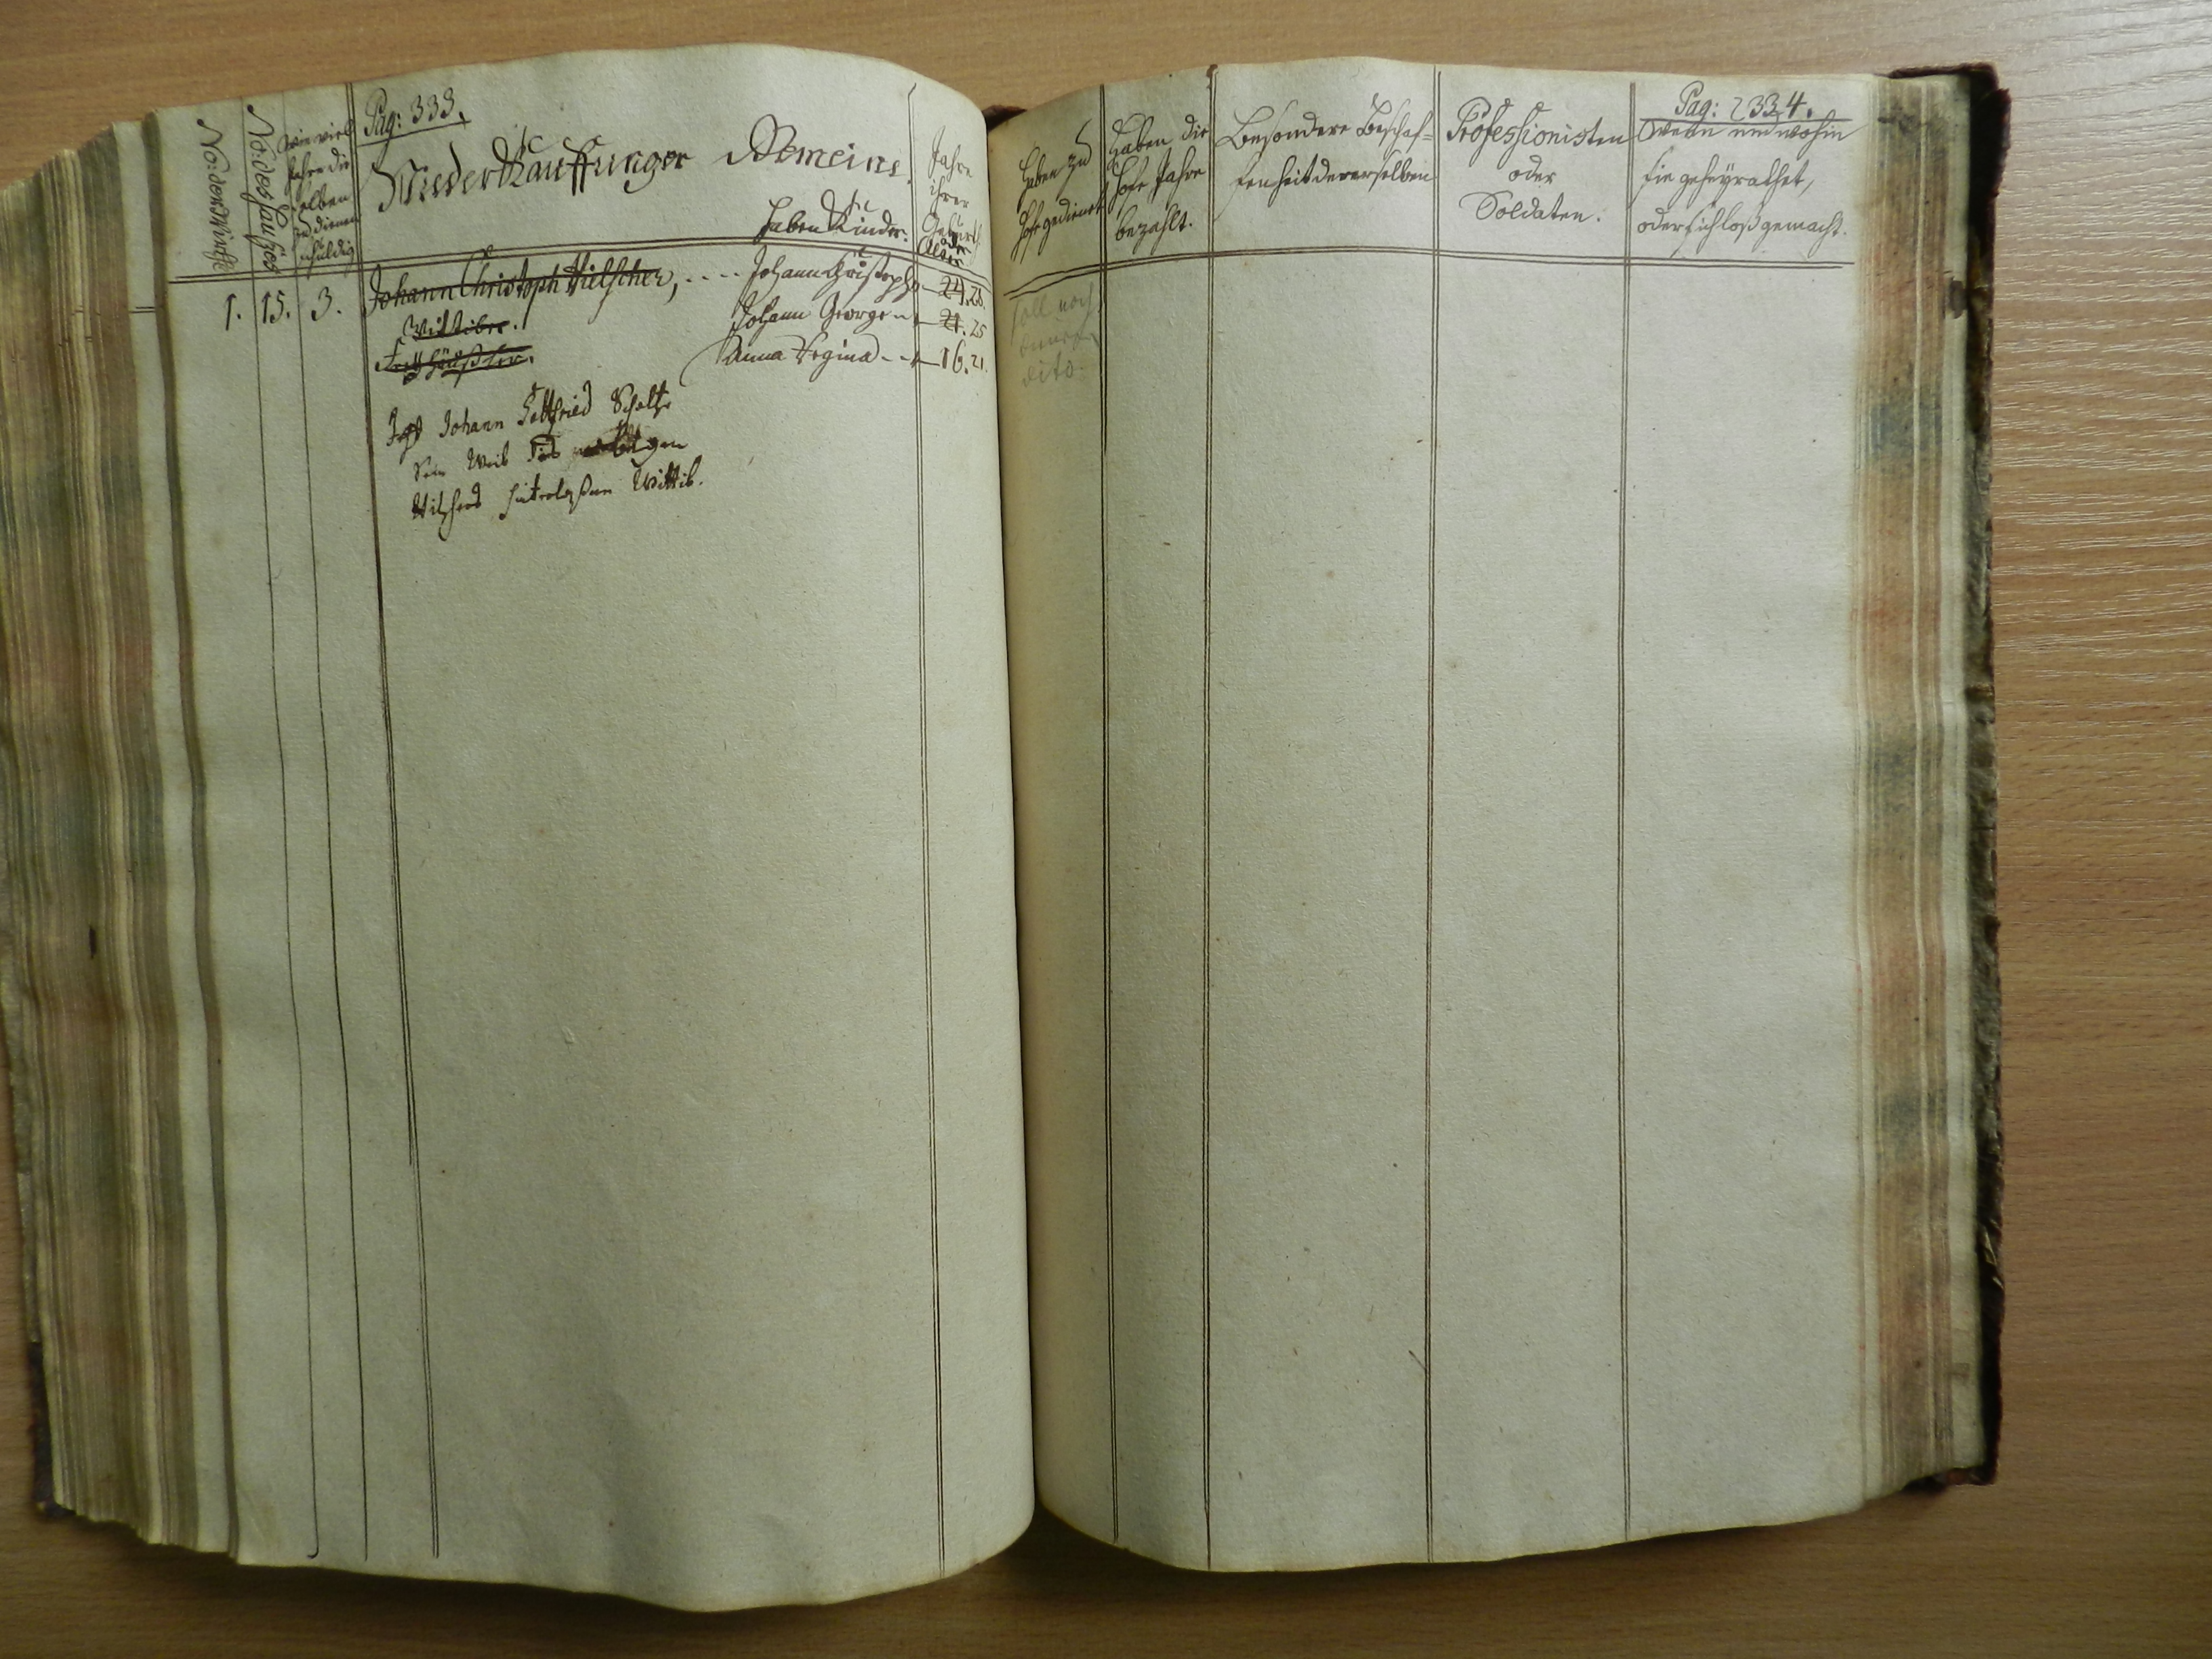 Pag: 333.
No: der Wirthe
No: des Haußes
Wie viel
Jahre die
selben
zu dienen
schuldig
Nieder Kauffunger Gemeine.
haben Kinder.
Jahre
ihrer
Geburth
oder
Alder
1. 15. 3. Johann Christoph Hielscher, .... Johann Christoph 24. 28.
Wittiber. Johann George 21. 25
Freyhäußler. Anna Regina 16. 21.
Jzt Johann Gottfried Scholtz
Sein Weib
hinterlaßene Wittib.
Pag: 334.
haben zu
Hofe gedienet
haben die
Hofe Jahre
bezahlt.
Besondere Beschaf=
fenheit dererselben
Professionisten
oder
Soldaten.
Wenn und wohin
sie geheyrathet,
oder sich loß gemacht.
soll noch
dito